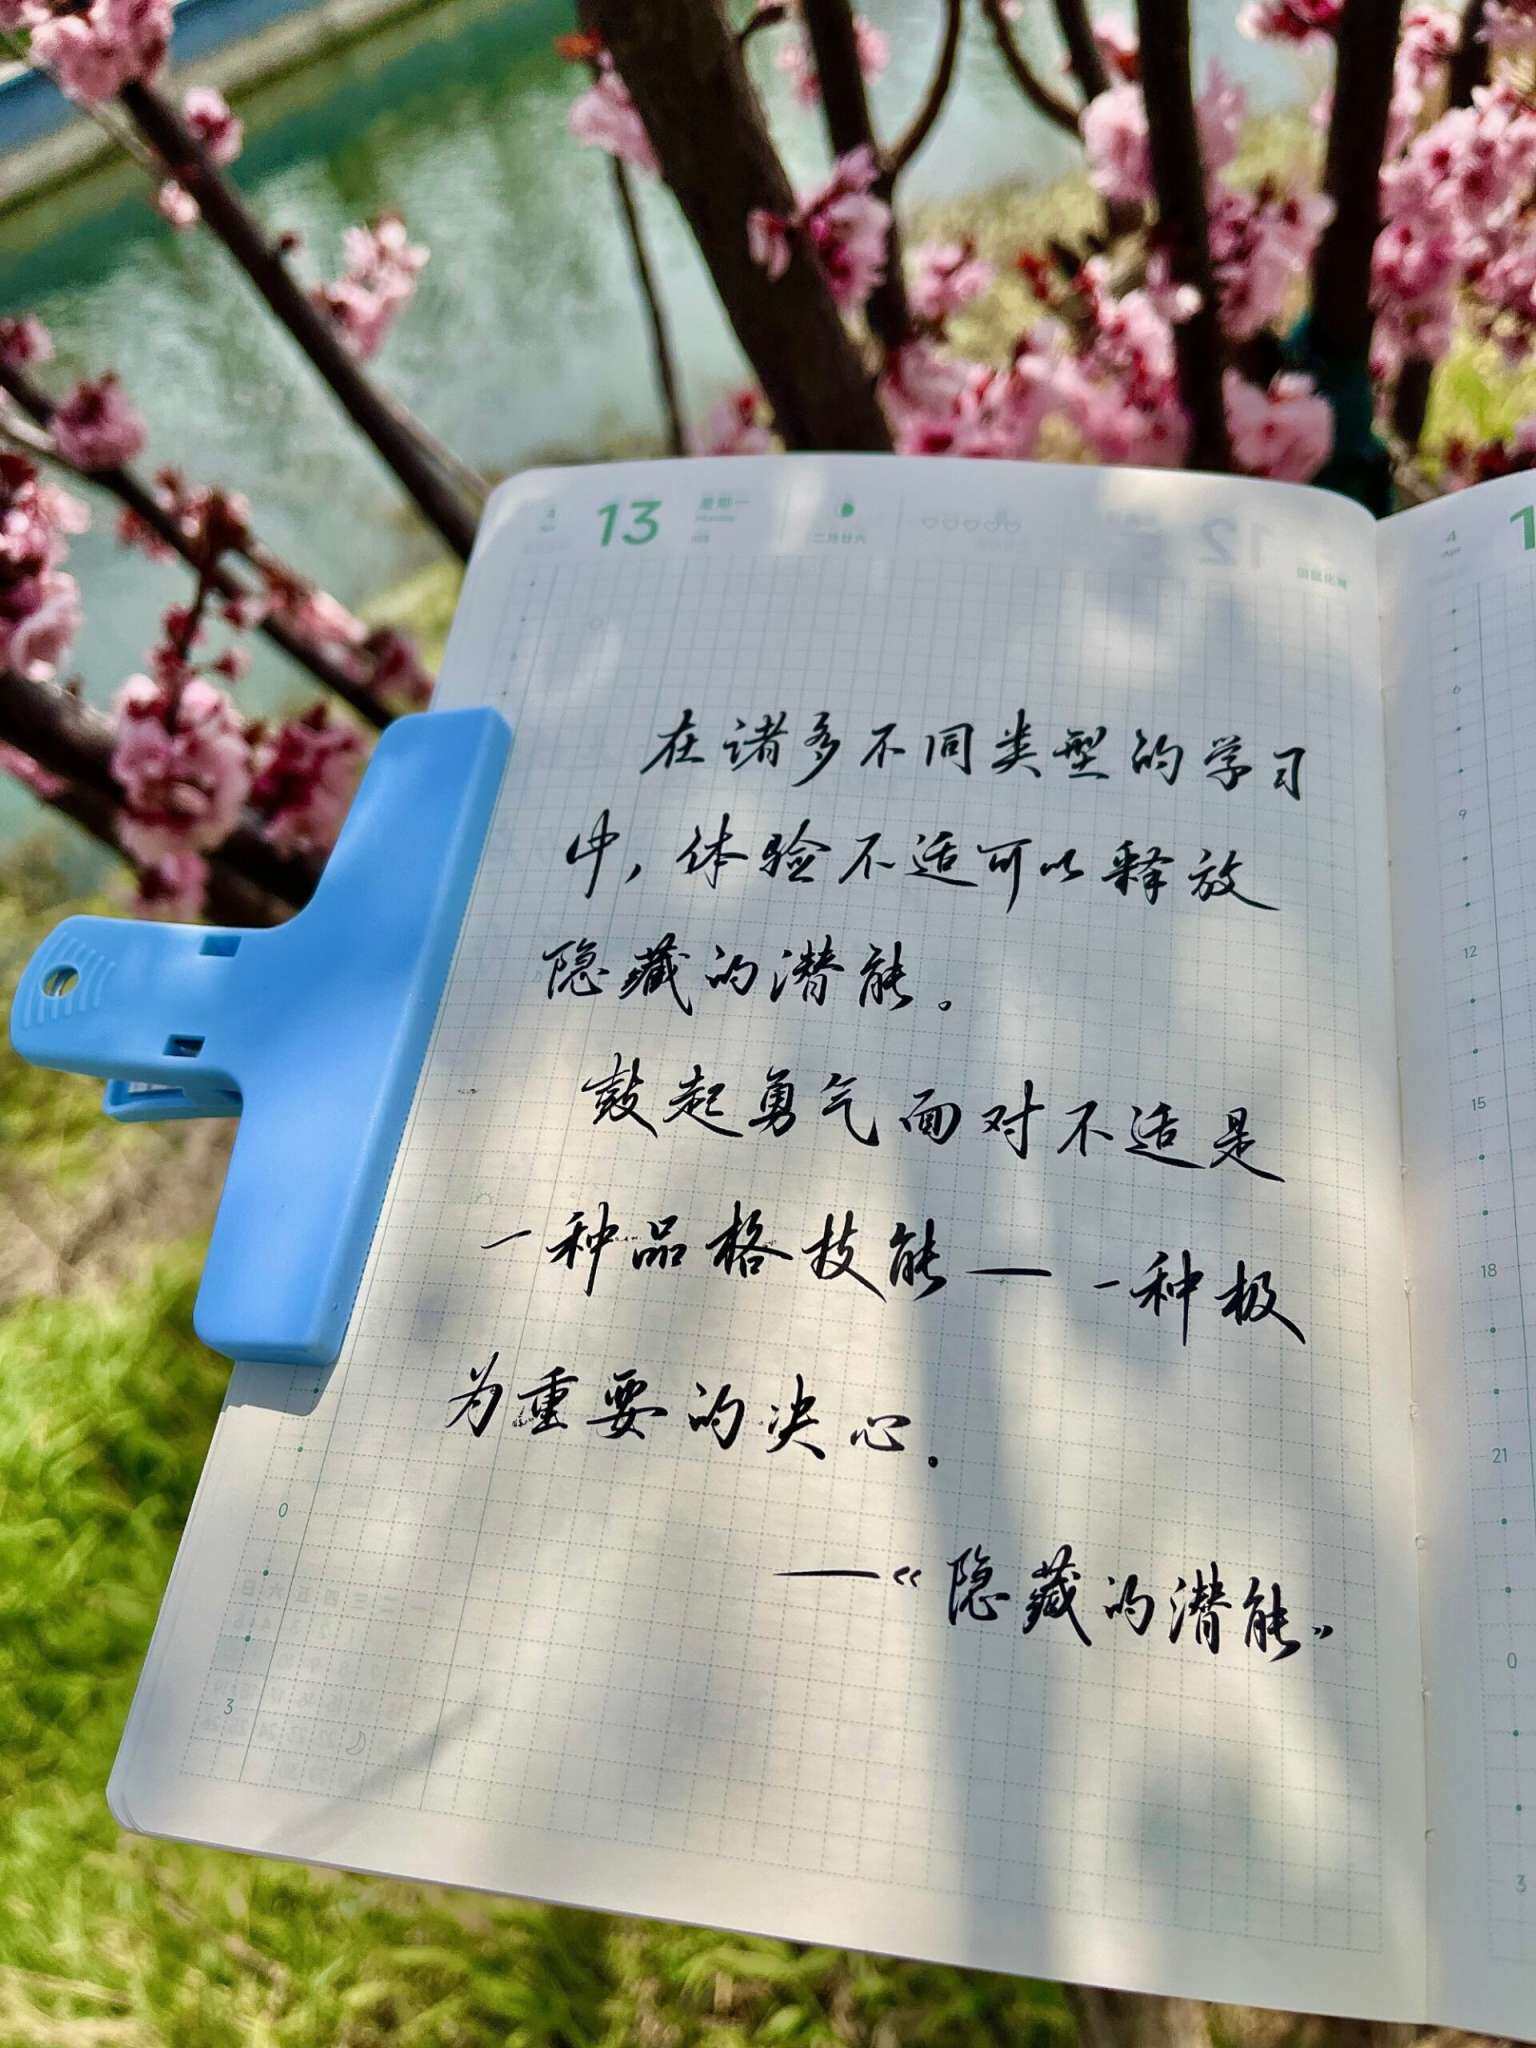 4
13 星期一
二月廿六
12
4
Apr
1
在诸多不同类型的学习
中，体验不适可以释放
隐藏的潜能。
鼓起勇气面对不适是
一种品格技能——一种极
为重要的决心.
——《隐藏的潜能》
0
3
6
9
12
15
18
21
0
3